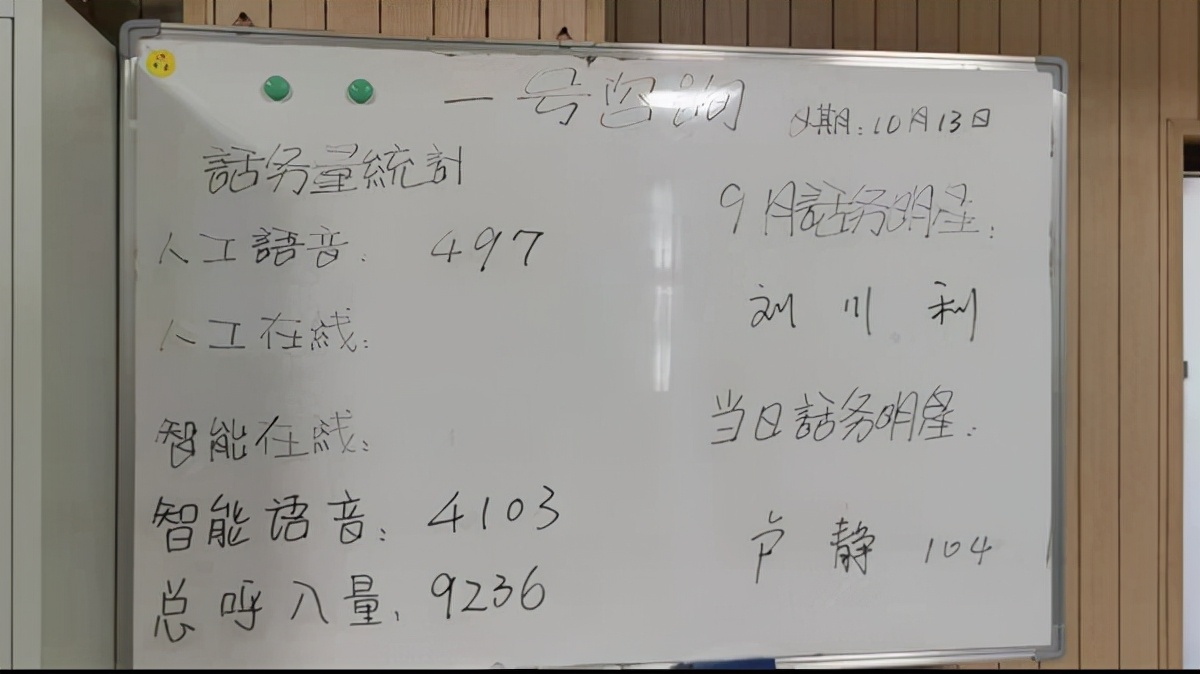 一号咨询
日期:10月13日
話务量統計
人工語音:497
人工在线:
智能在线:
智能语音:4103
总呼入量:9236
9月話务明星:
刘川利
当日話务明星:
卢静 104